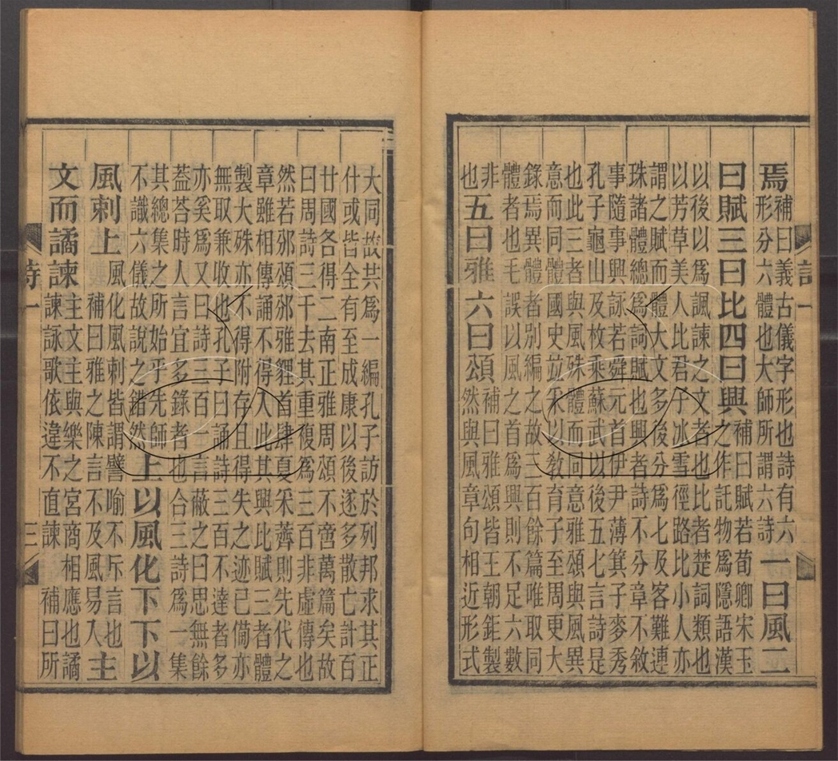 焉補曰義古儀字形也詩有六
形分六體也大師所謂六詩一曰風二
曰賦三曰比四曰興補曰賦若荀卿宋玉
之作託物為隱語漢
以後以為諷諫之文者也比者楚詞類也
以芳草美人比君子冰雪徑路比小人亦
謂之賦而體大文多後分為七及客難連
珠諸體總為詞賦也興者詩不分章不敘
事隨事興詠若舜元首伊尹薄箕子麥秀
孔子龜山及枚乘蘇武以後五七言詩是
也此三者與風殊體而同意雅頌與風異
意而同體國史並采以敎育子至周更大
錄焉異體者別編之故三百餘篇唯取同
體者也毛誤以風之首為興則不足六數
非
也五曰雅六曰頌補曰雅頌皆王朝鉅製
然與風章句相近形式
詩一
大同故共為一編孔子訪於列邦求其正
什或皆全有至成康以後遂多散亡計百
廿國各得二南正雅周頌不啻萬篇矣故
曰周詩三千去其重複為三百非虛傳也
然若邠頌邠雅貍首肆夏采薺則先代之
章雖相傳誦不得入此其興比賦三者體
製大殊亦不得附存且得失之迹已僃亦
無取兼收也孔子曰誦詩三百不達者多
亦奚為又曰詩三百一言蔽之曰思無餘
蓋荅時人言宜多錄者也合三詩為一集
其總集之所始乎先師
不識六儀故說之錯然上以風化下下以
風刺上風化風刺皆謂譬喻不斥言也
補曰雅之陳言不及風易入主
文而譎諫主文主與樂之宮商相應也譎
諫詠歌依違不直諫 補曰所
詩一 三